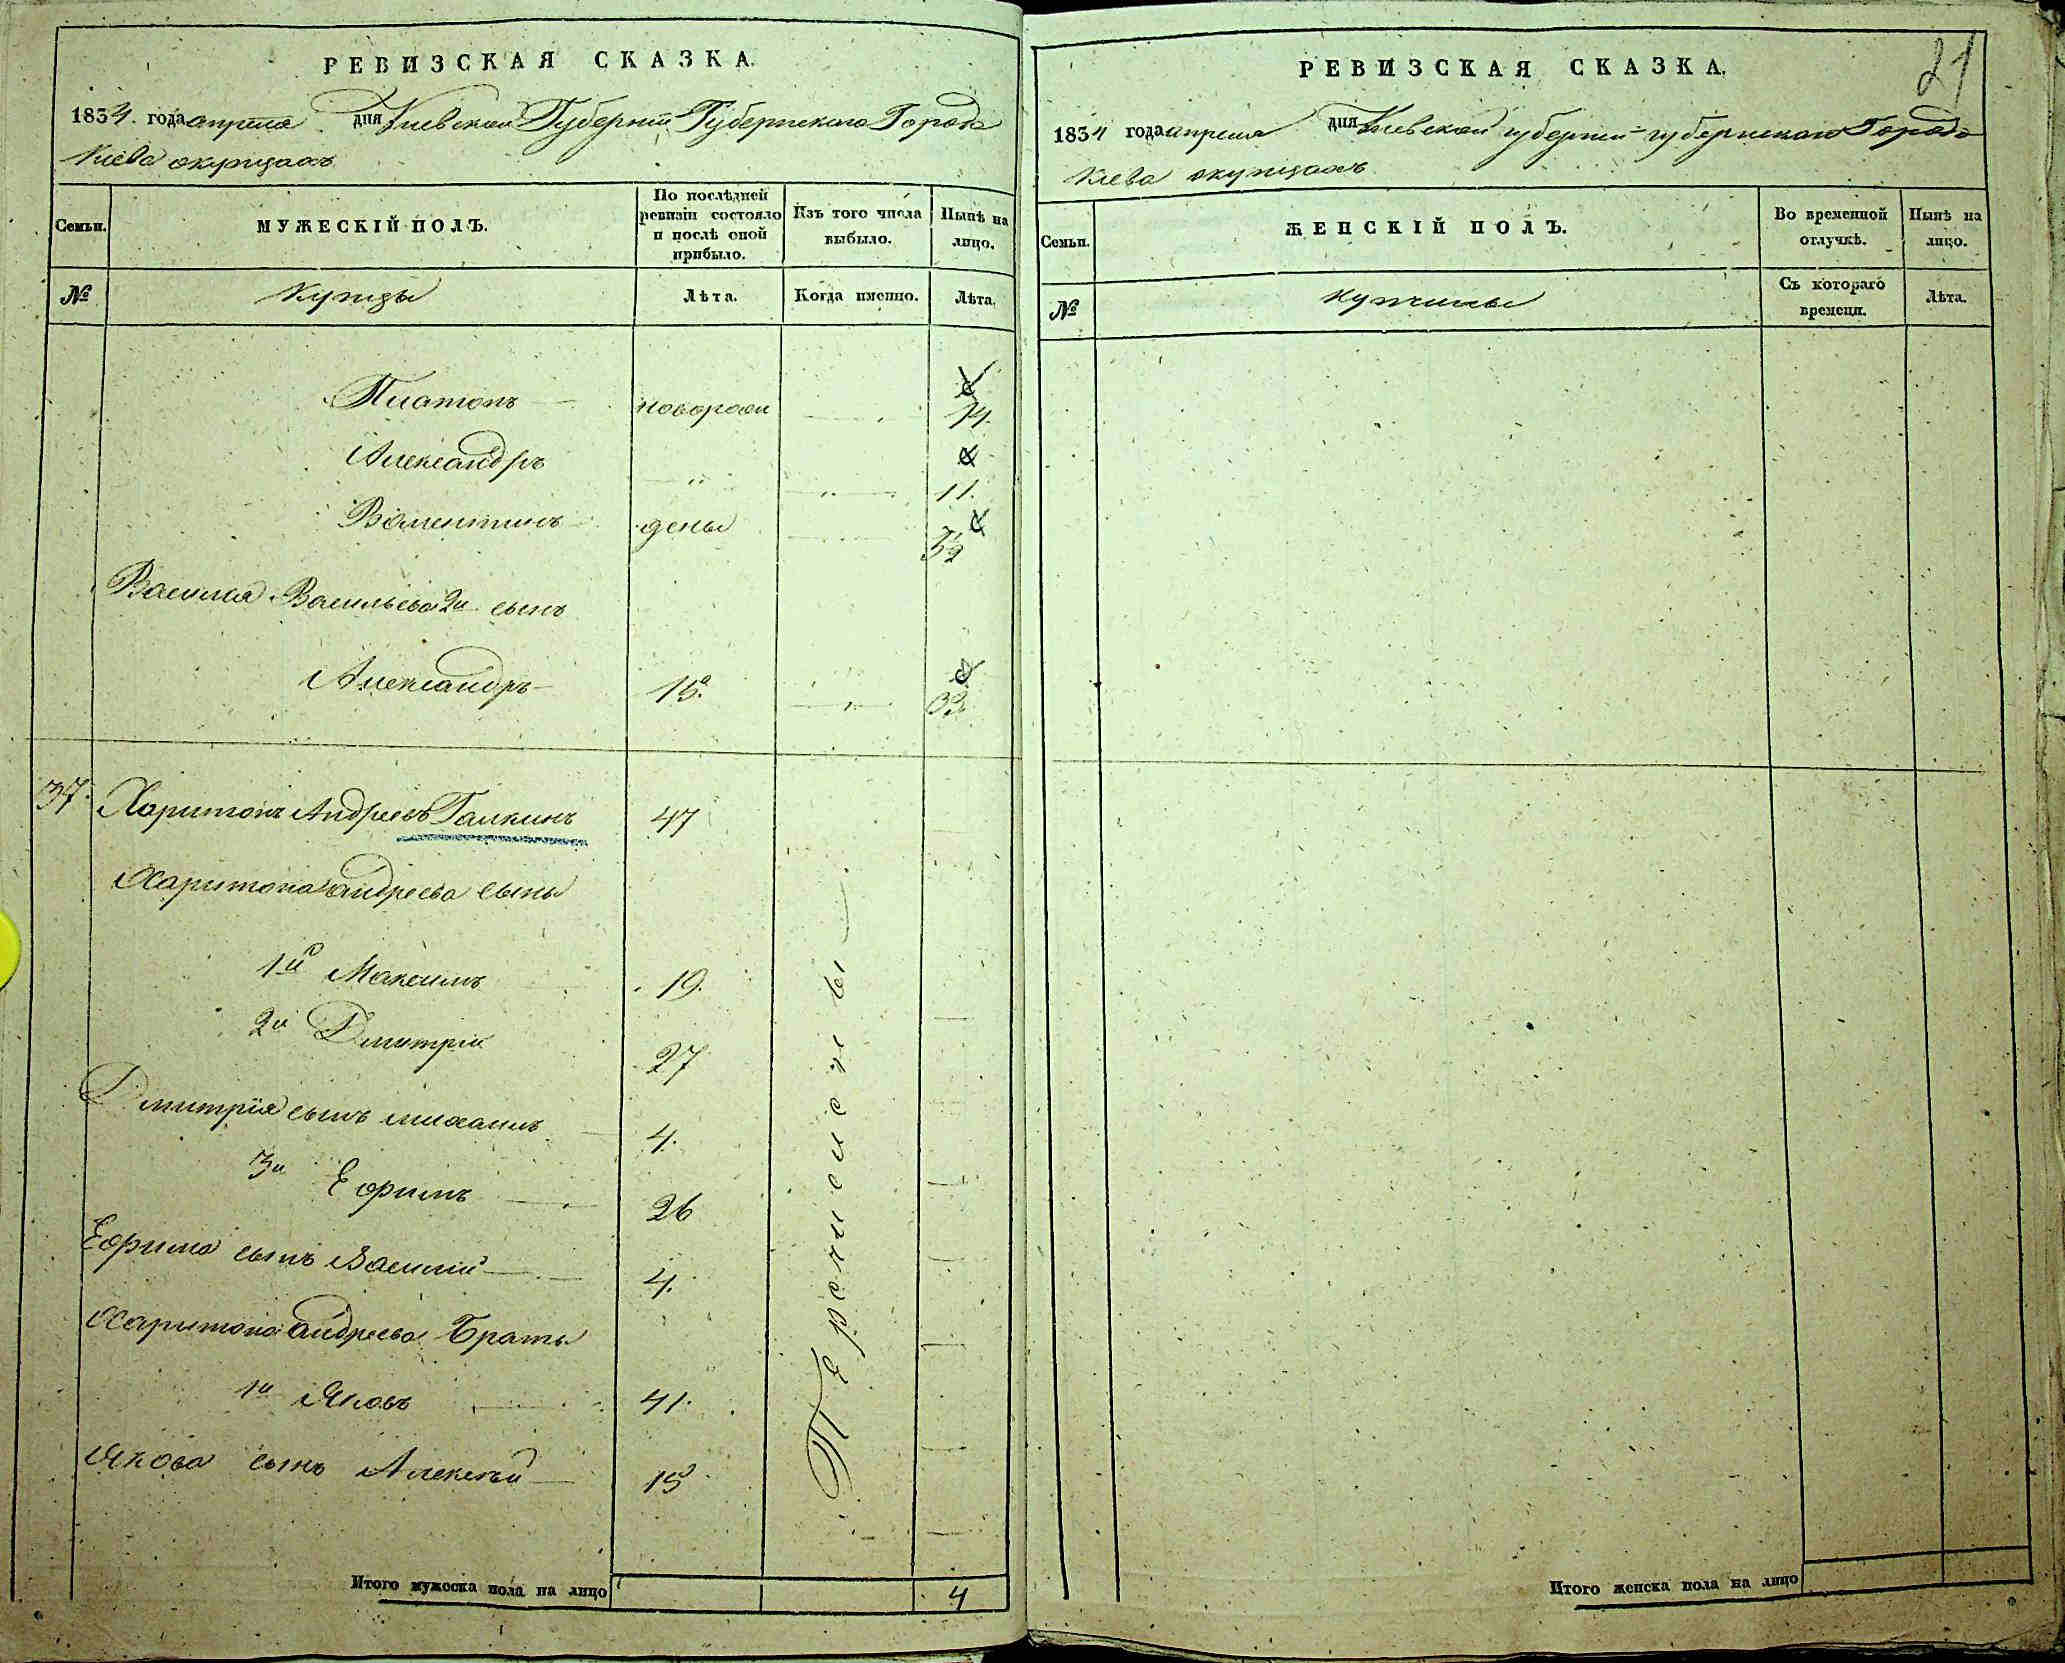 РЕВИЗСКАЯ СКАЗКА.
1834. года апреля дня Киевской Губернии Губернского Города
Киева окупцахъ
Семьи.
МУЖЕСКІЙ ПОЛЪ.
По послѣдней ревизіи состояло и послѣ оной прибыло.
Изъ того числа выбыло.
Нынѣ на лицо.
№
Купцы
Лѣта.
Когда именно.
Лѣта.
Платонъ новорожд 14.
Александръ " " 11.
Валентинъ дены
Василия Васильева 2й сынъ
Александръ 15. "
37. Харитонъ Андреевъ Галкинъ 47
Харитона андреева сыны
1й Максимъ 19.
2й Дмитрій 27
Дмитрія сынъ михаилъ 4.
3й Ефимъ 26
Ефима сынъ Василій 4.
Харитона андреева Браты
1й Яковъ 41.
Якова сынъ Алексѣй 15
Перечислены
Итого мужеска пола на лицо 4
21
РЕВИЗСКАЯ СКАЗКА.
1834 года апреля дня Киевской губернии губернского Города
Киева окупцахъ
Семьи.
ЖЕНСКІЙ ПОЛЪ.
Во временной отлучкѣ.
Нынѣ на лицо.
№
Съ котораго времени.
Лѣта.
Итого женска пола на лицо